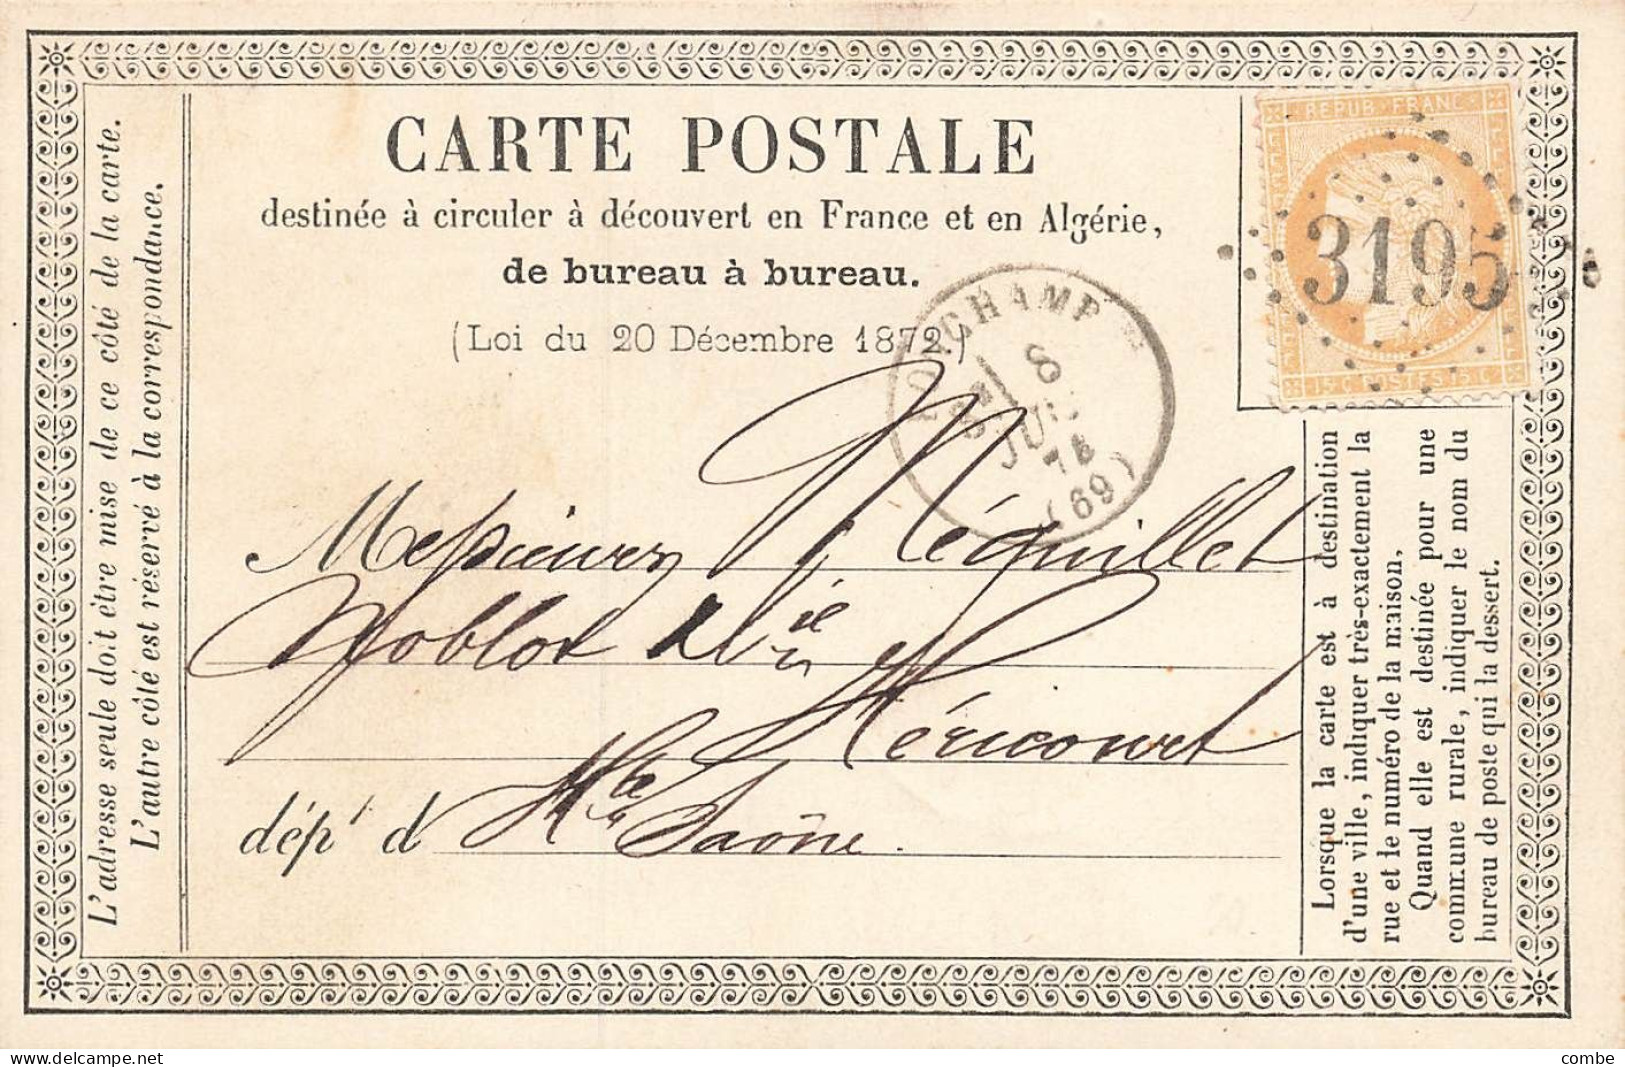 CARTE POSTALE
destinée à circuler à découvert en France et en Algérie,
de bureau à bureau.
(Loi du 20 Décembre 1872.)
L'adresse seule doit être mise de ce côté de la carte.
L'autre côté est réservé à la correspondance.
REPUB FRANC
3195
15 C POSTES 15 C
RONCHAMP
8
74
(69)
Messieurs Méquillet
Noblot & Cie
Héricourt
dépt d Hte Saône.
Lorsque la carte est à destination
d'une ville, indiquer très-exactement la
rue et le numéro de la maison.
Quand elle est destinée pour une
commune rurale, indiquer le nom du
bureau de poste qui la dessert.
combe